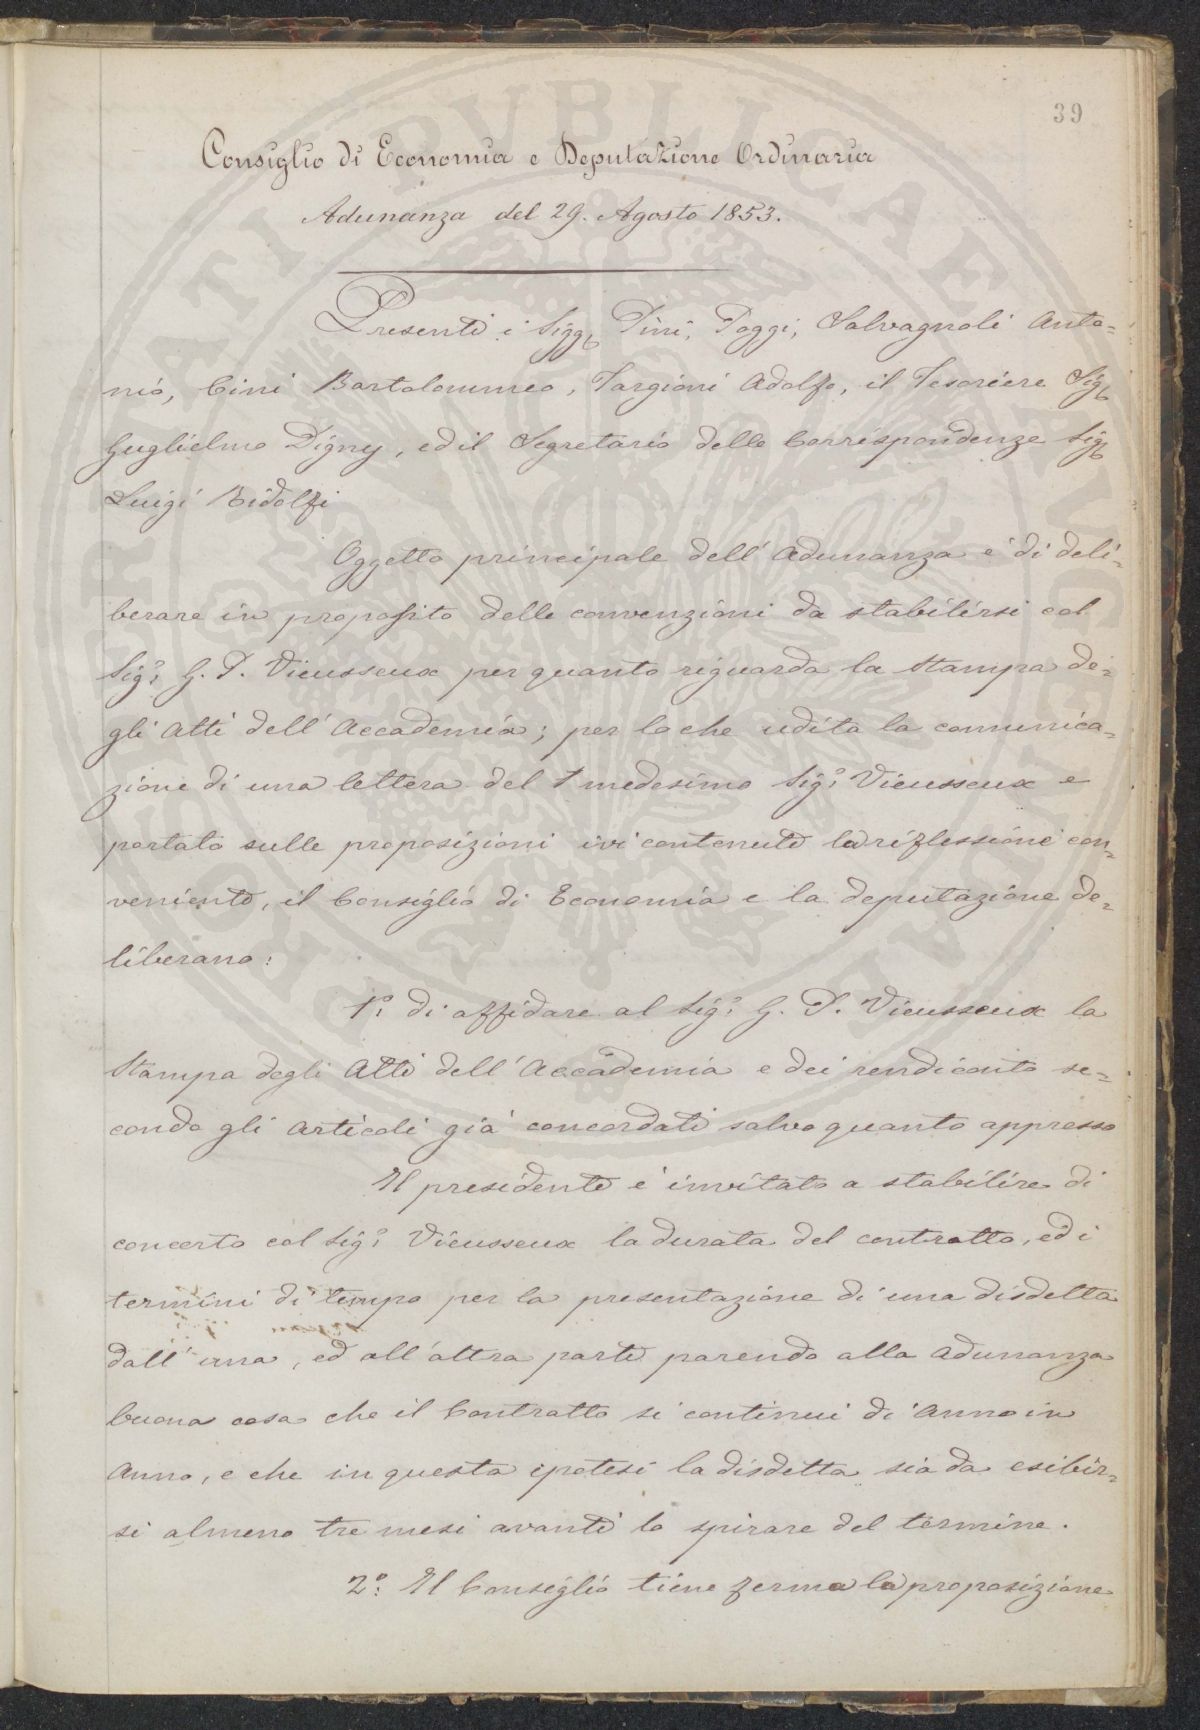 39
Consiglio di Economia e Deputazione Ordinaria
Adunanza del 29. Agosto 1853.
Presenti i Sigg. Pini, Poggi, Salvagnoli Anto=
nio, Cini Bartolommeo, Targioni Adolfo, il Tesoriere Sig.
Guglielmo Digny, ed il Segretario delle Corrispondenze Sig.
Luigi Ridolfi
Oggetto principale dell'Adunanza è di deli=
berare in proposito delle convenzioni da stabilirsi col
Sig.e G. P. Vieusseux per quanto riguarda la Stampa de=
gli Atti dell'Accademia; per lo che udita la comunica=
zione di una lettera del medesimo Sig.e Vieusseux e
portato sulle proposizioni ivi contenute la riflessione con=
veniente, il Consiglio di Economia e la deputazione de=
liberano:
1.o di affidare al Sig.e G. P. Vieusseux la
Stampa degli Atti dell'Accademia e dei rendiconto se=
condo gli articoli già concordati salvo quanto appresso
Il presidente è invitato a stabilire di
concerto col Sig.e Vieusseux la durata del contratto, ed i
termini di tempo per la presentazione di una disdetta
dall'una, ed all'altra parte parendo alla Adunanza
buona cosa che il Contratto si continui di Anno in
Anno, e che in questa ipotesi la disdetta sia da esibir=
si almeno tre mesi avanti lo spirare del termine.
2.o Il Consiglio tiene ferma la proposizione
PUBLICAE